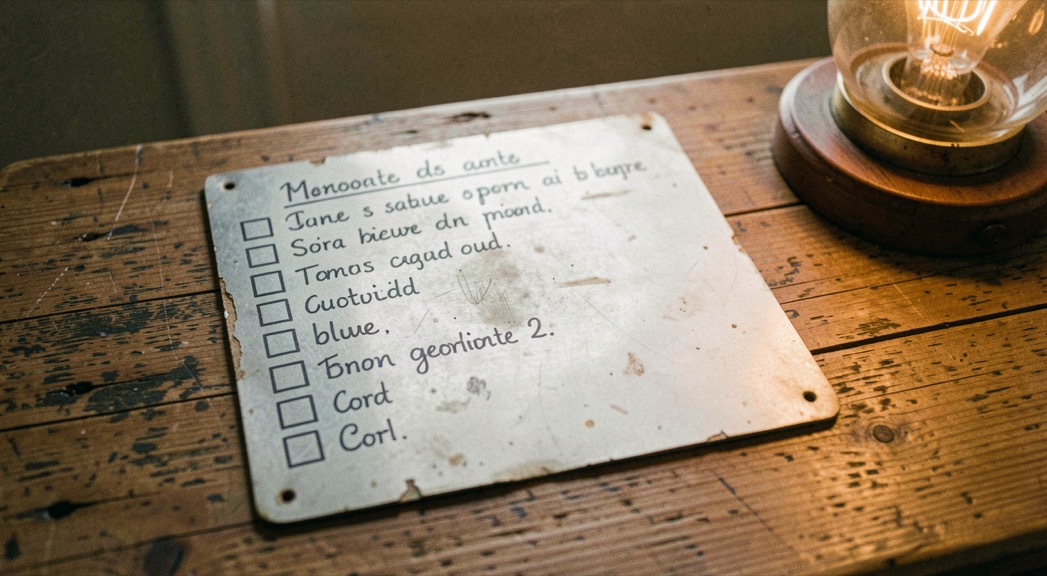 Monooate ds amte
Jane s sabue oporn ai b bugre
Sora hiewe dn piond.
Tomas cugad oud.
Cuotuidd
blue.
Enon georlionte 2.
Cord
Corl.